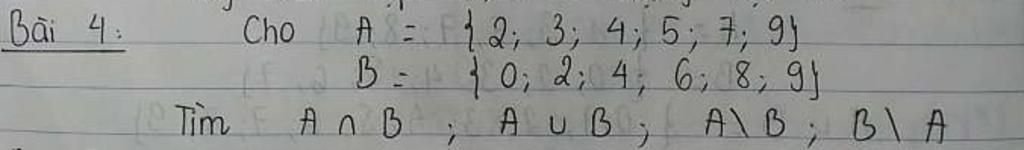 Bài 4: Cho A = {2; 3; 4; 5; 7; 9}
B = {0; 2; 4; 6; 8; 9}
Tìm A ∩ B ; A ∪ B ; A \ B ; B \ A